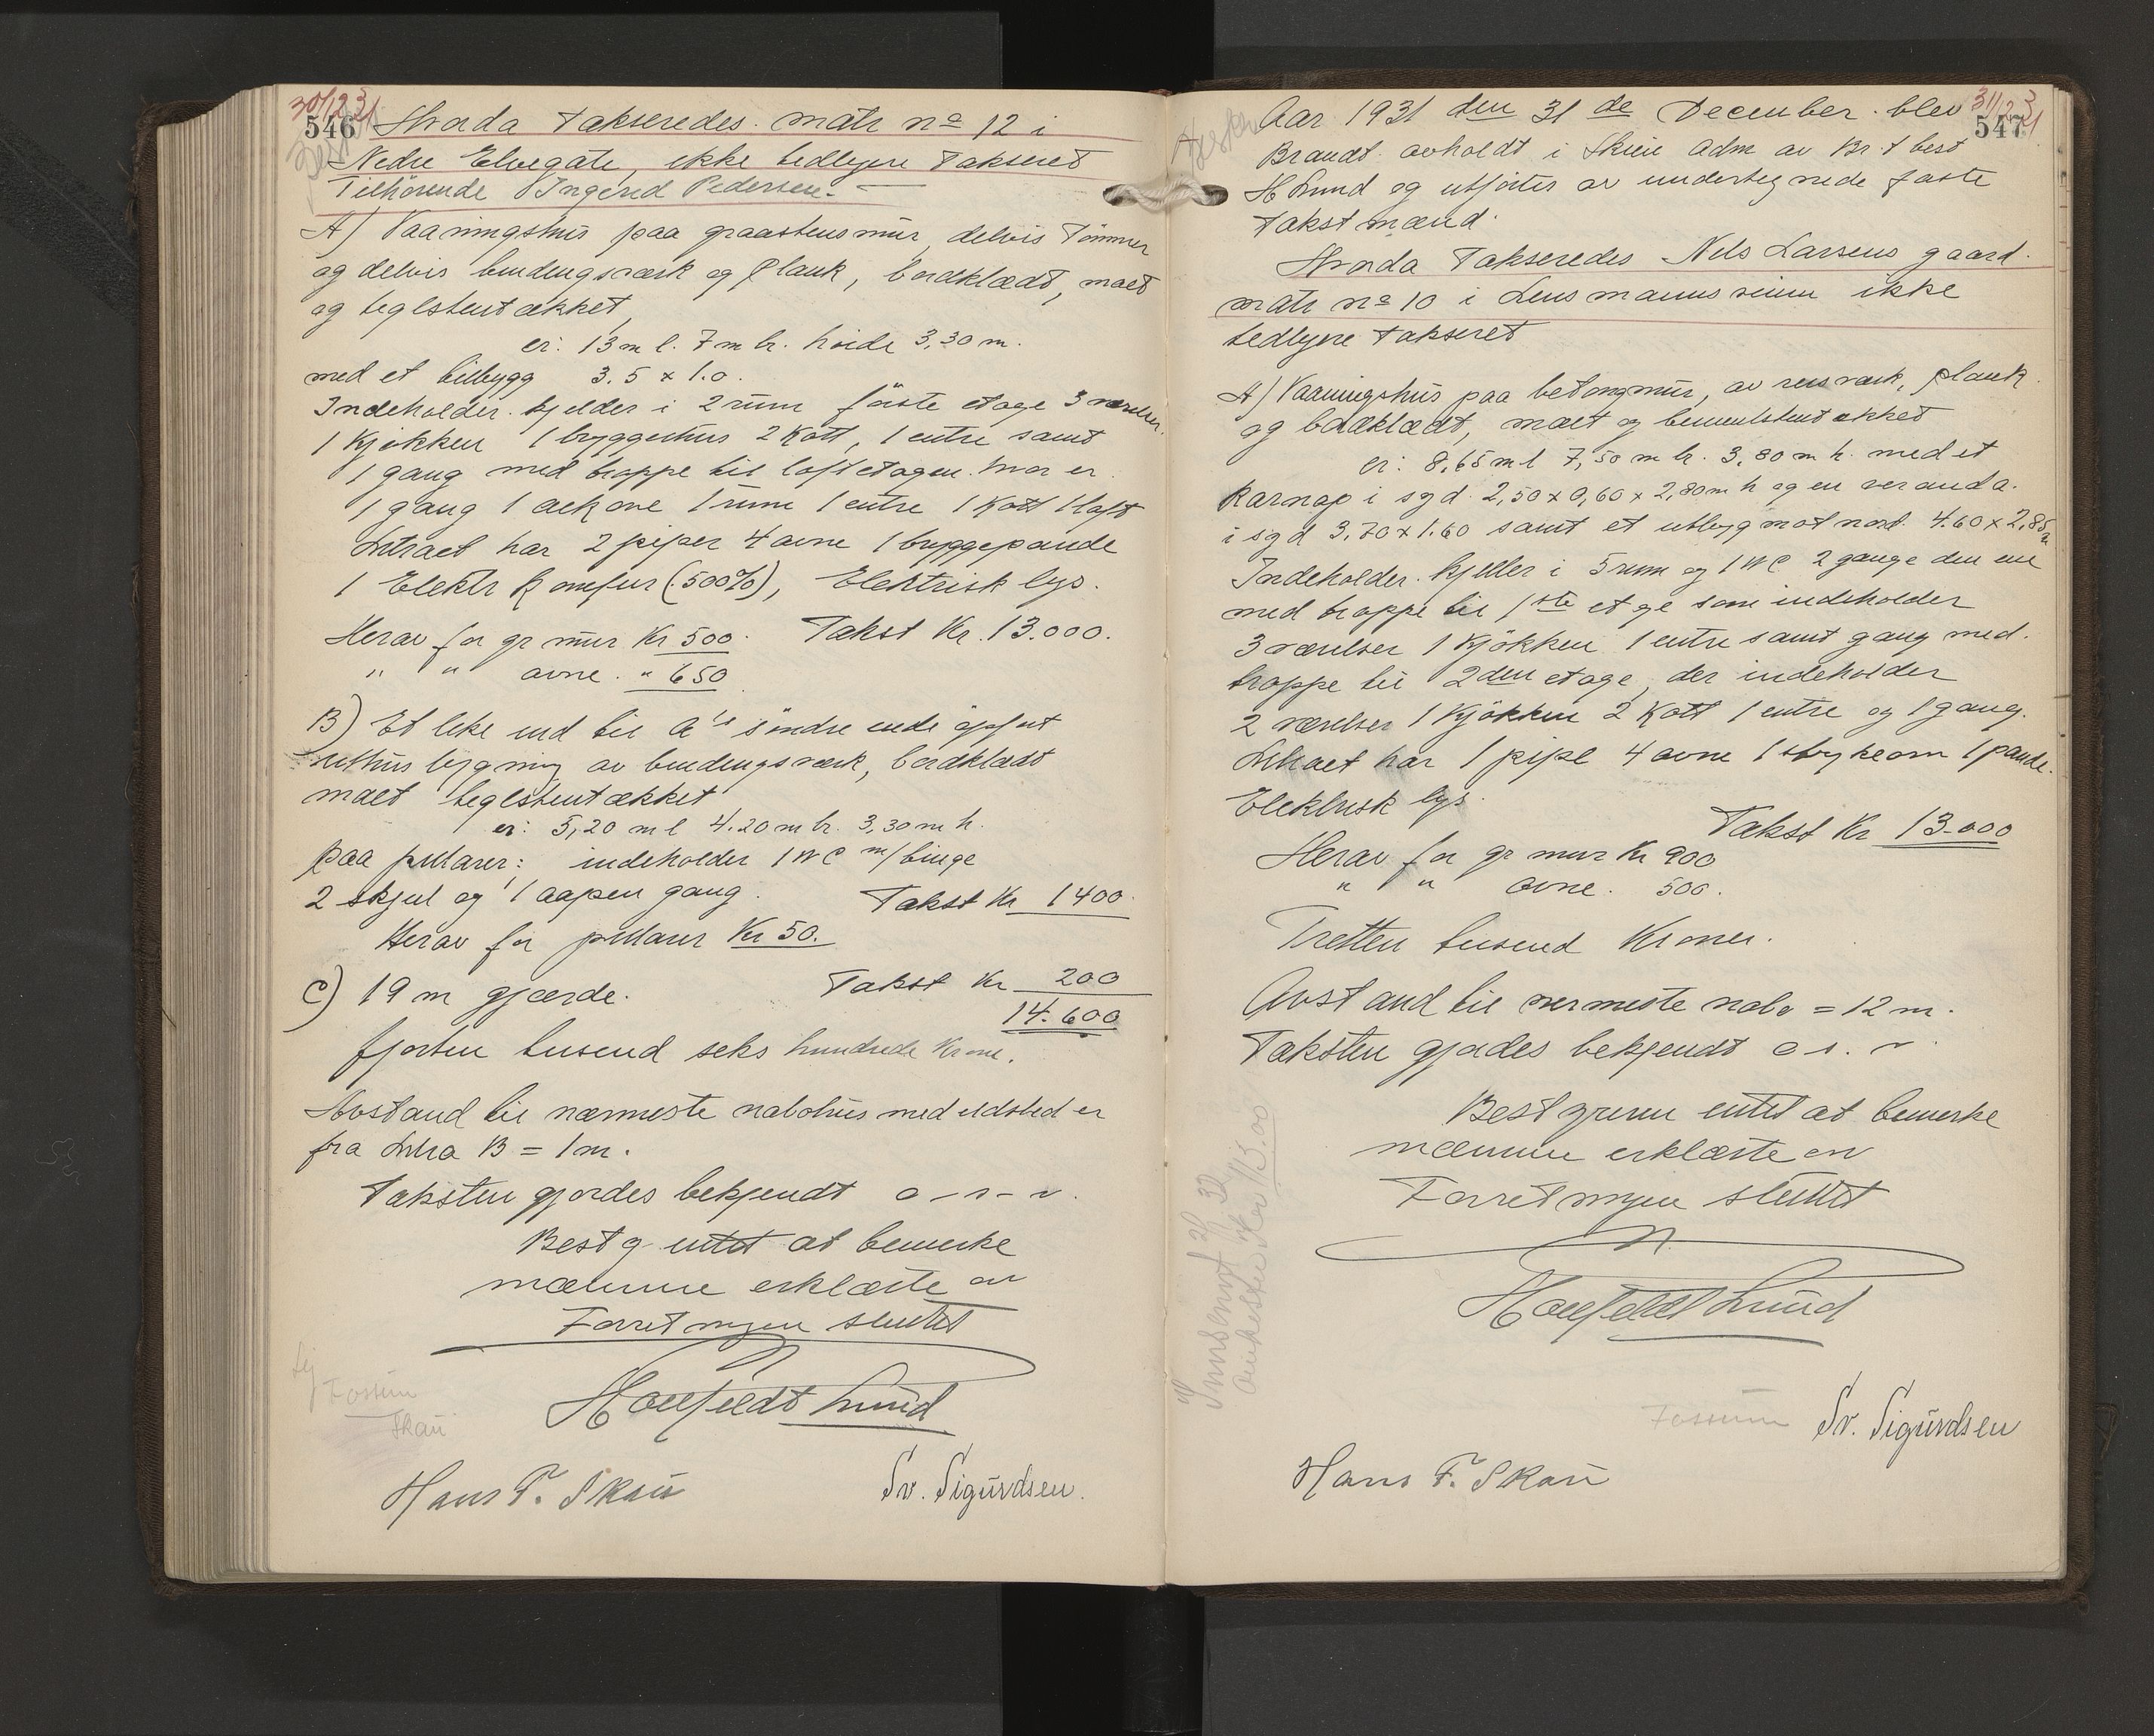 30/12 31
546 Hvorda Takseredes. matr no 12 i
Nedre Elvegate, ikke tedligere Takseret
Tilhörende Ingerid Pedersen. —
A) Vaaningshus paa graastensmur, delvis Tömmer
og delvis bindingsværk og Plank, bordklædt, malt
og teglstentækket,
er: 13 m l. 7 m br. höide 3,30 m.
med et tilbygg 3.5 x 1.0.
Indeholder. kjelder i 2 rum förste etage 3 værelser.
1 Kjökken 1 bryggerhus 2 Kott, 1 entre samt
1 gang med troppe til loftetagen. hvor er
1 gang 1 alkove 1 rum 1 entre 1 Kott 1 loft
Litraet har 2 piper 4 ovne 1 bryggepande
1 Elektr Komfur (500%), Elektrisk lys.
Herav for gr mur Kr 500. Takst Kr. 13.000.
" " ovne. " 650
B) Et like ind til A's söndre ende opført
uthus bygning av bindingsværk, bordklædt
malt teglstentækket
er: 5,20 m l 4.20 m br. 3,30 m h.
paa pillarer: indeholder 1 WC m/ binge
2 skjul og 1 aapen gang. Takst Kr 1400.
Herav for pillarer Kr 50.
C) 19 m gjærde. Takst Kr 200
14.600
fjorten tusend seks hundrede Krone.
Avstand til nærmeste nabohus med ildsted er
fra Litra B = 1 m.
Taksten gjordes bekjendt o - s - v.
Best g intet at bemerke
mænnene erklærte av
Forretningen sluttet
Hallfeldt Lund
Fossum
Skau
Hans F. Skau Sv. Sigurdsen.
31/12 31
547
Aar 1931 den 31 de December. blev
Brandt. avholdt i Skien Adm av Br. t best
H Lund og utförtes av undertegnede faste
Takstmænd.
Hvorda Takseredes Nils Larsens gaard.
matr no 10 i Lensmannsveien ikke
tedligere Takseret
A) Vaaningshus paa betongmur, av reisværk, plank
og bordklædt, malt og cementstentækket
er: 8,65 m l 7,50 m br. 3,80 m h. med et
Karnap i syd. 2,50 x 0,60 x 2,80 m h og en veranda.
i syd 3,70 x 1.60 samt et utbygg mot nord. 4.60 x 2,85
Indeholder. Kjeller i 5 rum og 1 WC 2 gange den ene
med troppe til 1ste etge som indeholder
3 værelser 1 Kjökken 1 entre samt gang med.
troppe til 2den etage, der indeholder
2 værelser 1 Kjökken 2 Kott 1 entre og 1 gang.
Litraet har 1 pipe 4 ovne 1 strykeovn 1 pande.
Elektrisk lys.
Takst Kr 13.000
Herav for gr mur Kr 900
" " ovne. 500.
Tretten tusend Kroner.
Avstand til nermeste nabo = 12 m.
Taksten gjordes bekjendt o s. v.
Best g intet at bemerke
mænnene erklærte av
Forretningen sluttet
Hallfeldt Lund
Fossum Sv. Sigurdsen
Hans F. Skau